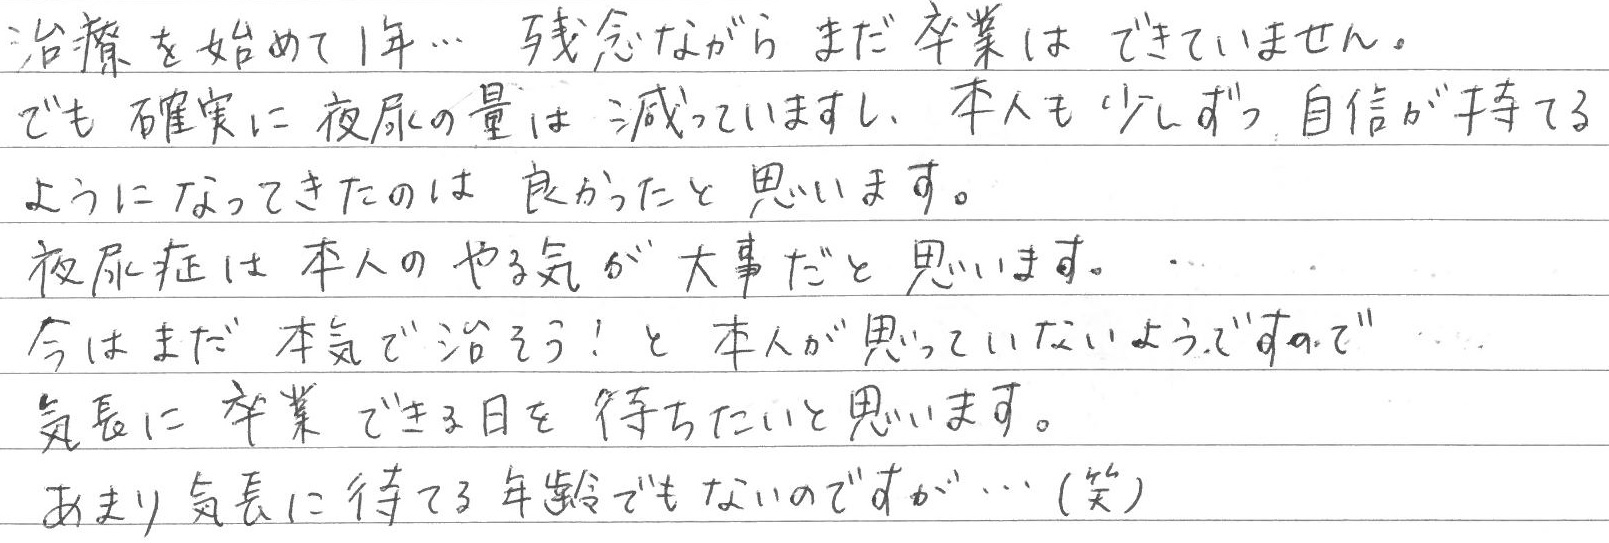 治療を始めて1年… 残念ながら まだ 卒業は できていません。
でも 確実に 夜尿の量は 減っていますし、本人も 少しずつ 自信が持てる
ようになってきたのは 良かったと 思います。
夜尿症は 本人の やる気が 大事だと 思います。
今はまだ 本気で治そう!と 本人が思っていないようですので
気長に 卒業できる日を 待ちたいと思います。
あまり気長に待てる年齢でもないのですが…(笑)